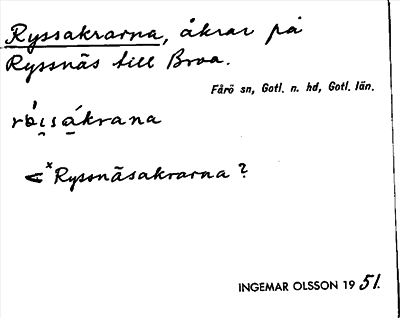 Ryssakrarna, åkrar på
Ryssnäs till Broa.
Fårö sn, Gotl. n. hd, Gotl. län.
ákrana
< *Ryssnäsakrarna?
INGEMAR OLSSON 19 51.